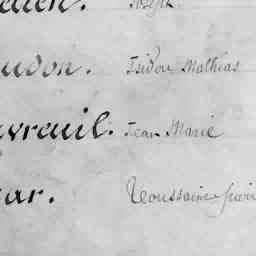 Joseph
udon. Isidore Mathias
vreuil. Jean Marie
ar. Toussaint